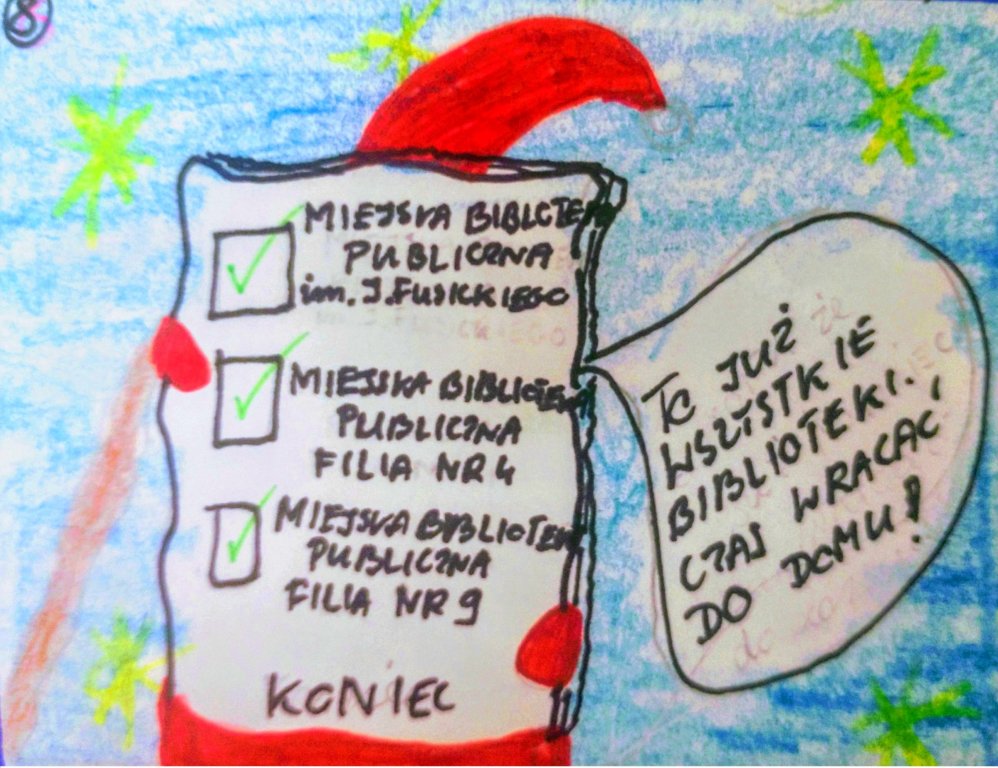 8
MIEJSKA BIBLIOTEK
PUBLICZNA
im. J. FUSICKIEGO
MIEJSKA BIBLIOTEK
PUBLICZNA
FILIA NR 4
MIEJSKA BIBLIOTEK
PUBLICZNA
FILIA NR 9
KONIEC
TO JUŻ
WSZYSTKIE
BIBLIOTEKI.
CZAS WRACAĆ
DO DOMU!